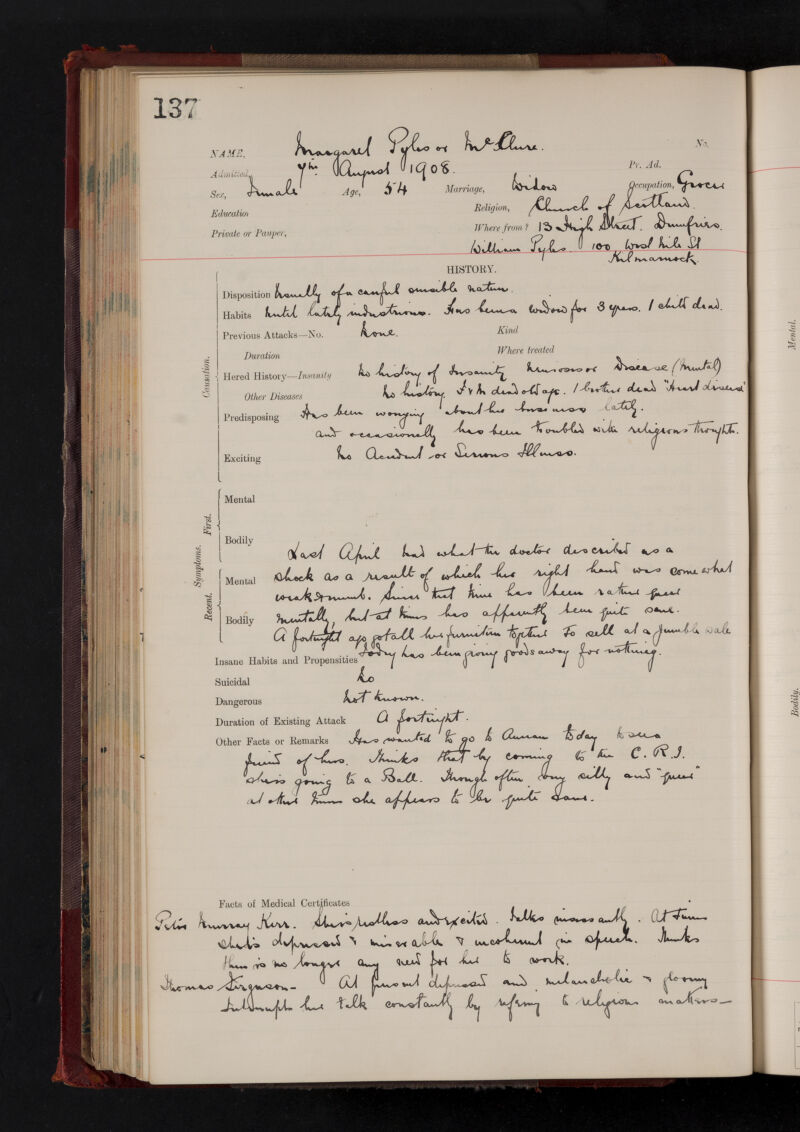 137
NAME, Margaret Pyles or McClure. No.
Admitted, 7th August 1908. Pr. Ad.
Sex, Female Age, 54 Marriage, Widow Occupation, Grocer
Education Religion, Church of Scotland.
Private or Pauper, Where from? 13 High Street. Dumfries.
William Pyles. 100 West Nile St
Kilmarnock
HISTORY.
Disposition Usually of a careful sensible nature.
Habits Until lately industrious. Has been a widow for 3 years. 1 child dead.
Previous Attacks—No. None. Kind
Duration Where treated
Causation.
Hered History—Insanity No history of Insanity Neuroses or Disease (Mental)
Other Diseases No history F & M dead old age. 1 brother dead "Heart disease"
Predisposing Has been worrying about her business lately.
and occasionally has been troubled with religious thoughts.
Exciting No Accident or Serious Illness.
Symptoms.
First.
Mental
Bodily
Last April had what the doctor described as a
Recent.
Mental shock as a result of which her right hand was somewhat
weak & numb. Since that time has been rather queer
Bodily mentally, but at times has apparently been quite sane.
A fortnight ago got all her furniture together to sell at a jumble sale
Insane Habits and Propensities Today has been giving goods away for nothing.
Suicidal No
Dangerous Not known.
Duration of Existing Attack A fortnight.
Other Facts or Remarks Has wanted to go to Annan today to see a
friend of hers. Thinks that by coming to the C. R. I.
she is going to a Ball. Though often very silly and "queer"
at other times she appears to be quite sane.
Facts of Medical Certificates
Peter Murray Kerr. She is restless and excited. Talks incessantly. At times
she is depressed & miserable & incoherent in speech. Thinks
there is no longer any need for her to work.
Thomas Ferguson— At present depressed and melancholic & gloomy
Interrupts her talk constantly by refering to religious matters—
Mental.
Bodily.